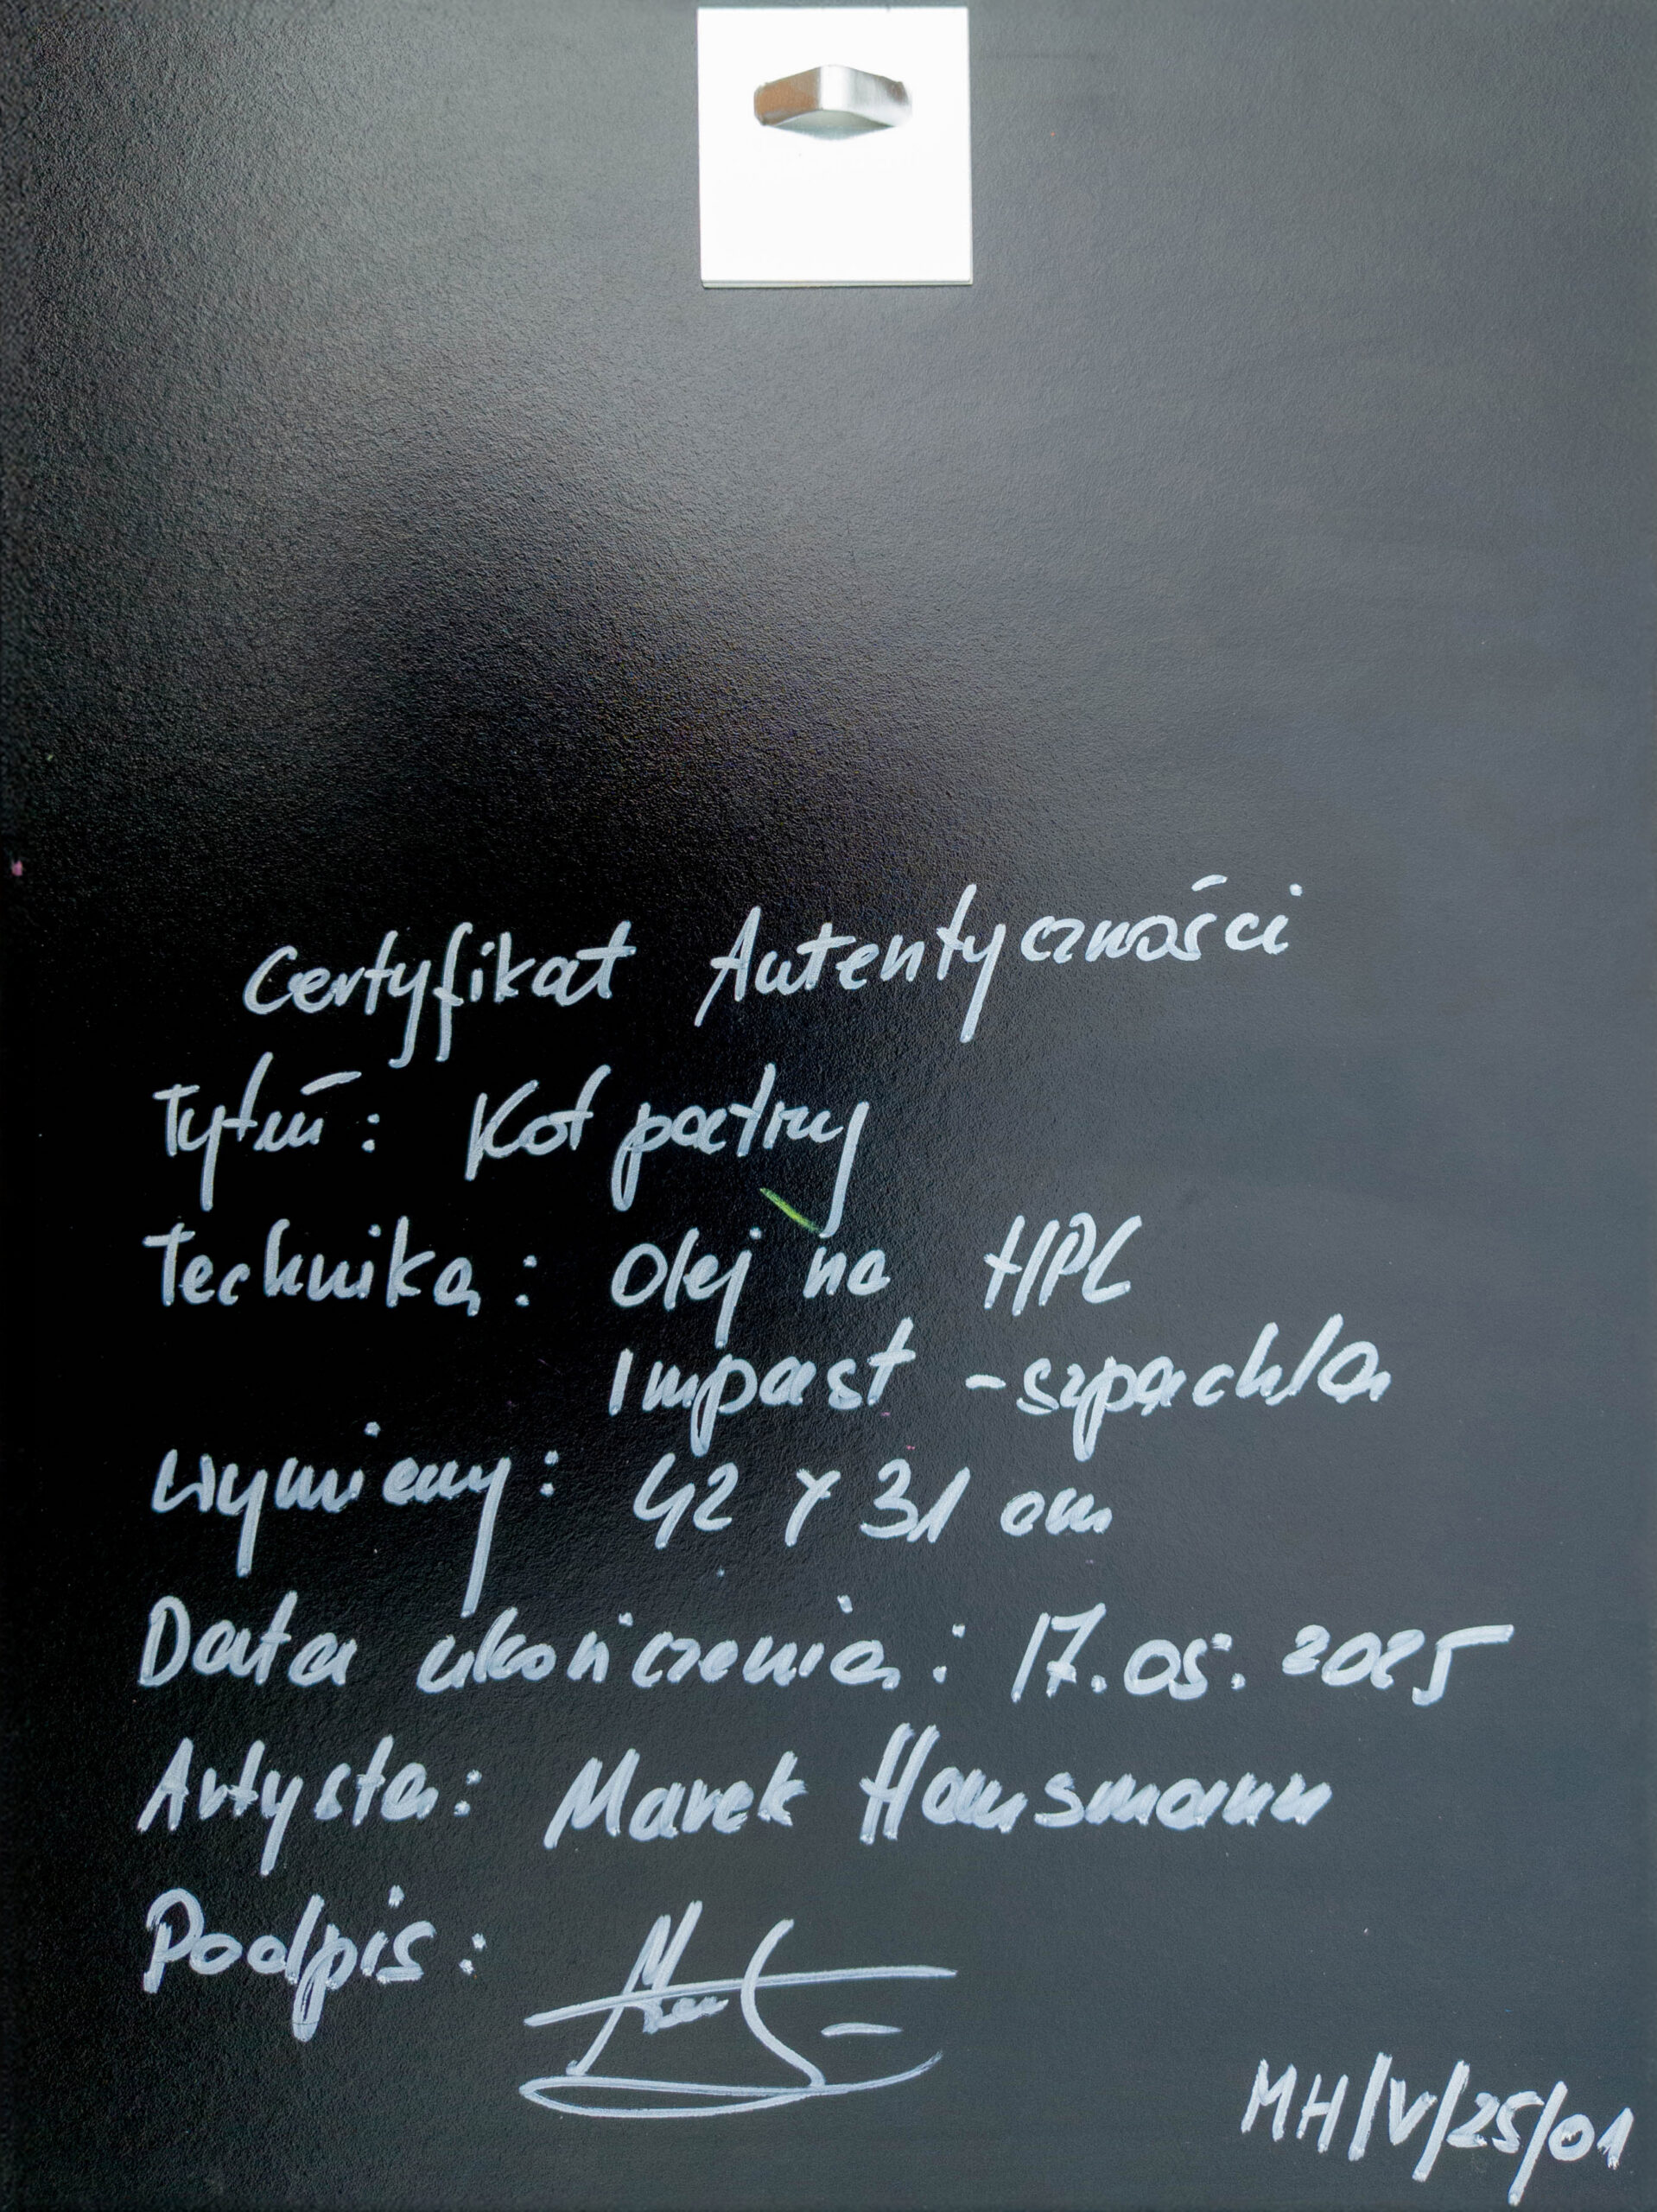 Certyfikat Autentyczności
Tytuł: Kot patrzy
Technika: Olej na HPL
Impast - szpachla
Wymiary: 42 x 31 cm
Data ukończenia: 17.05.2025
Artysta: Marek Hausmann
Podpis:
MH/V/25/01